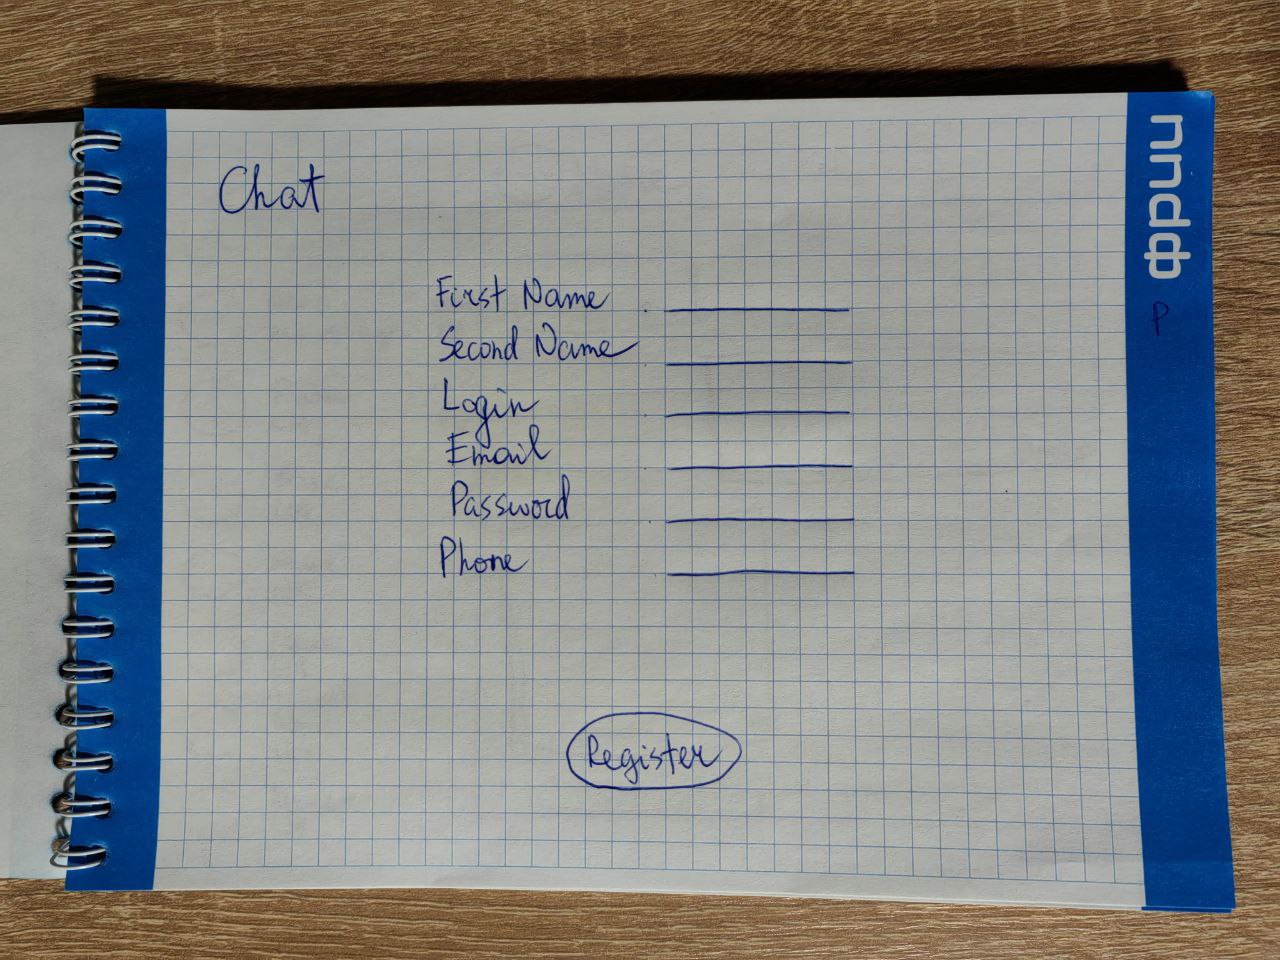 Chat
First Name
Second Name
Login
Email
Password
Phone
Register
P